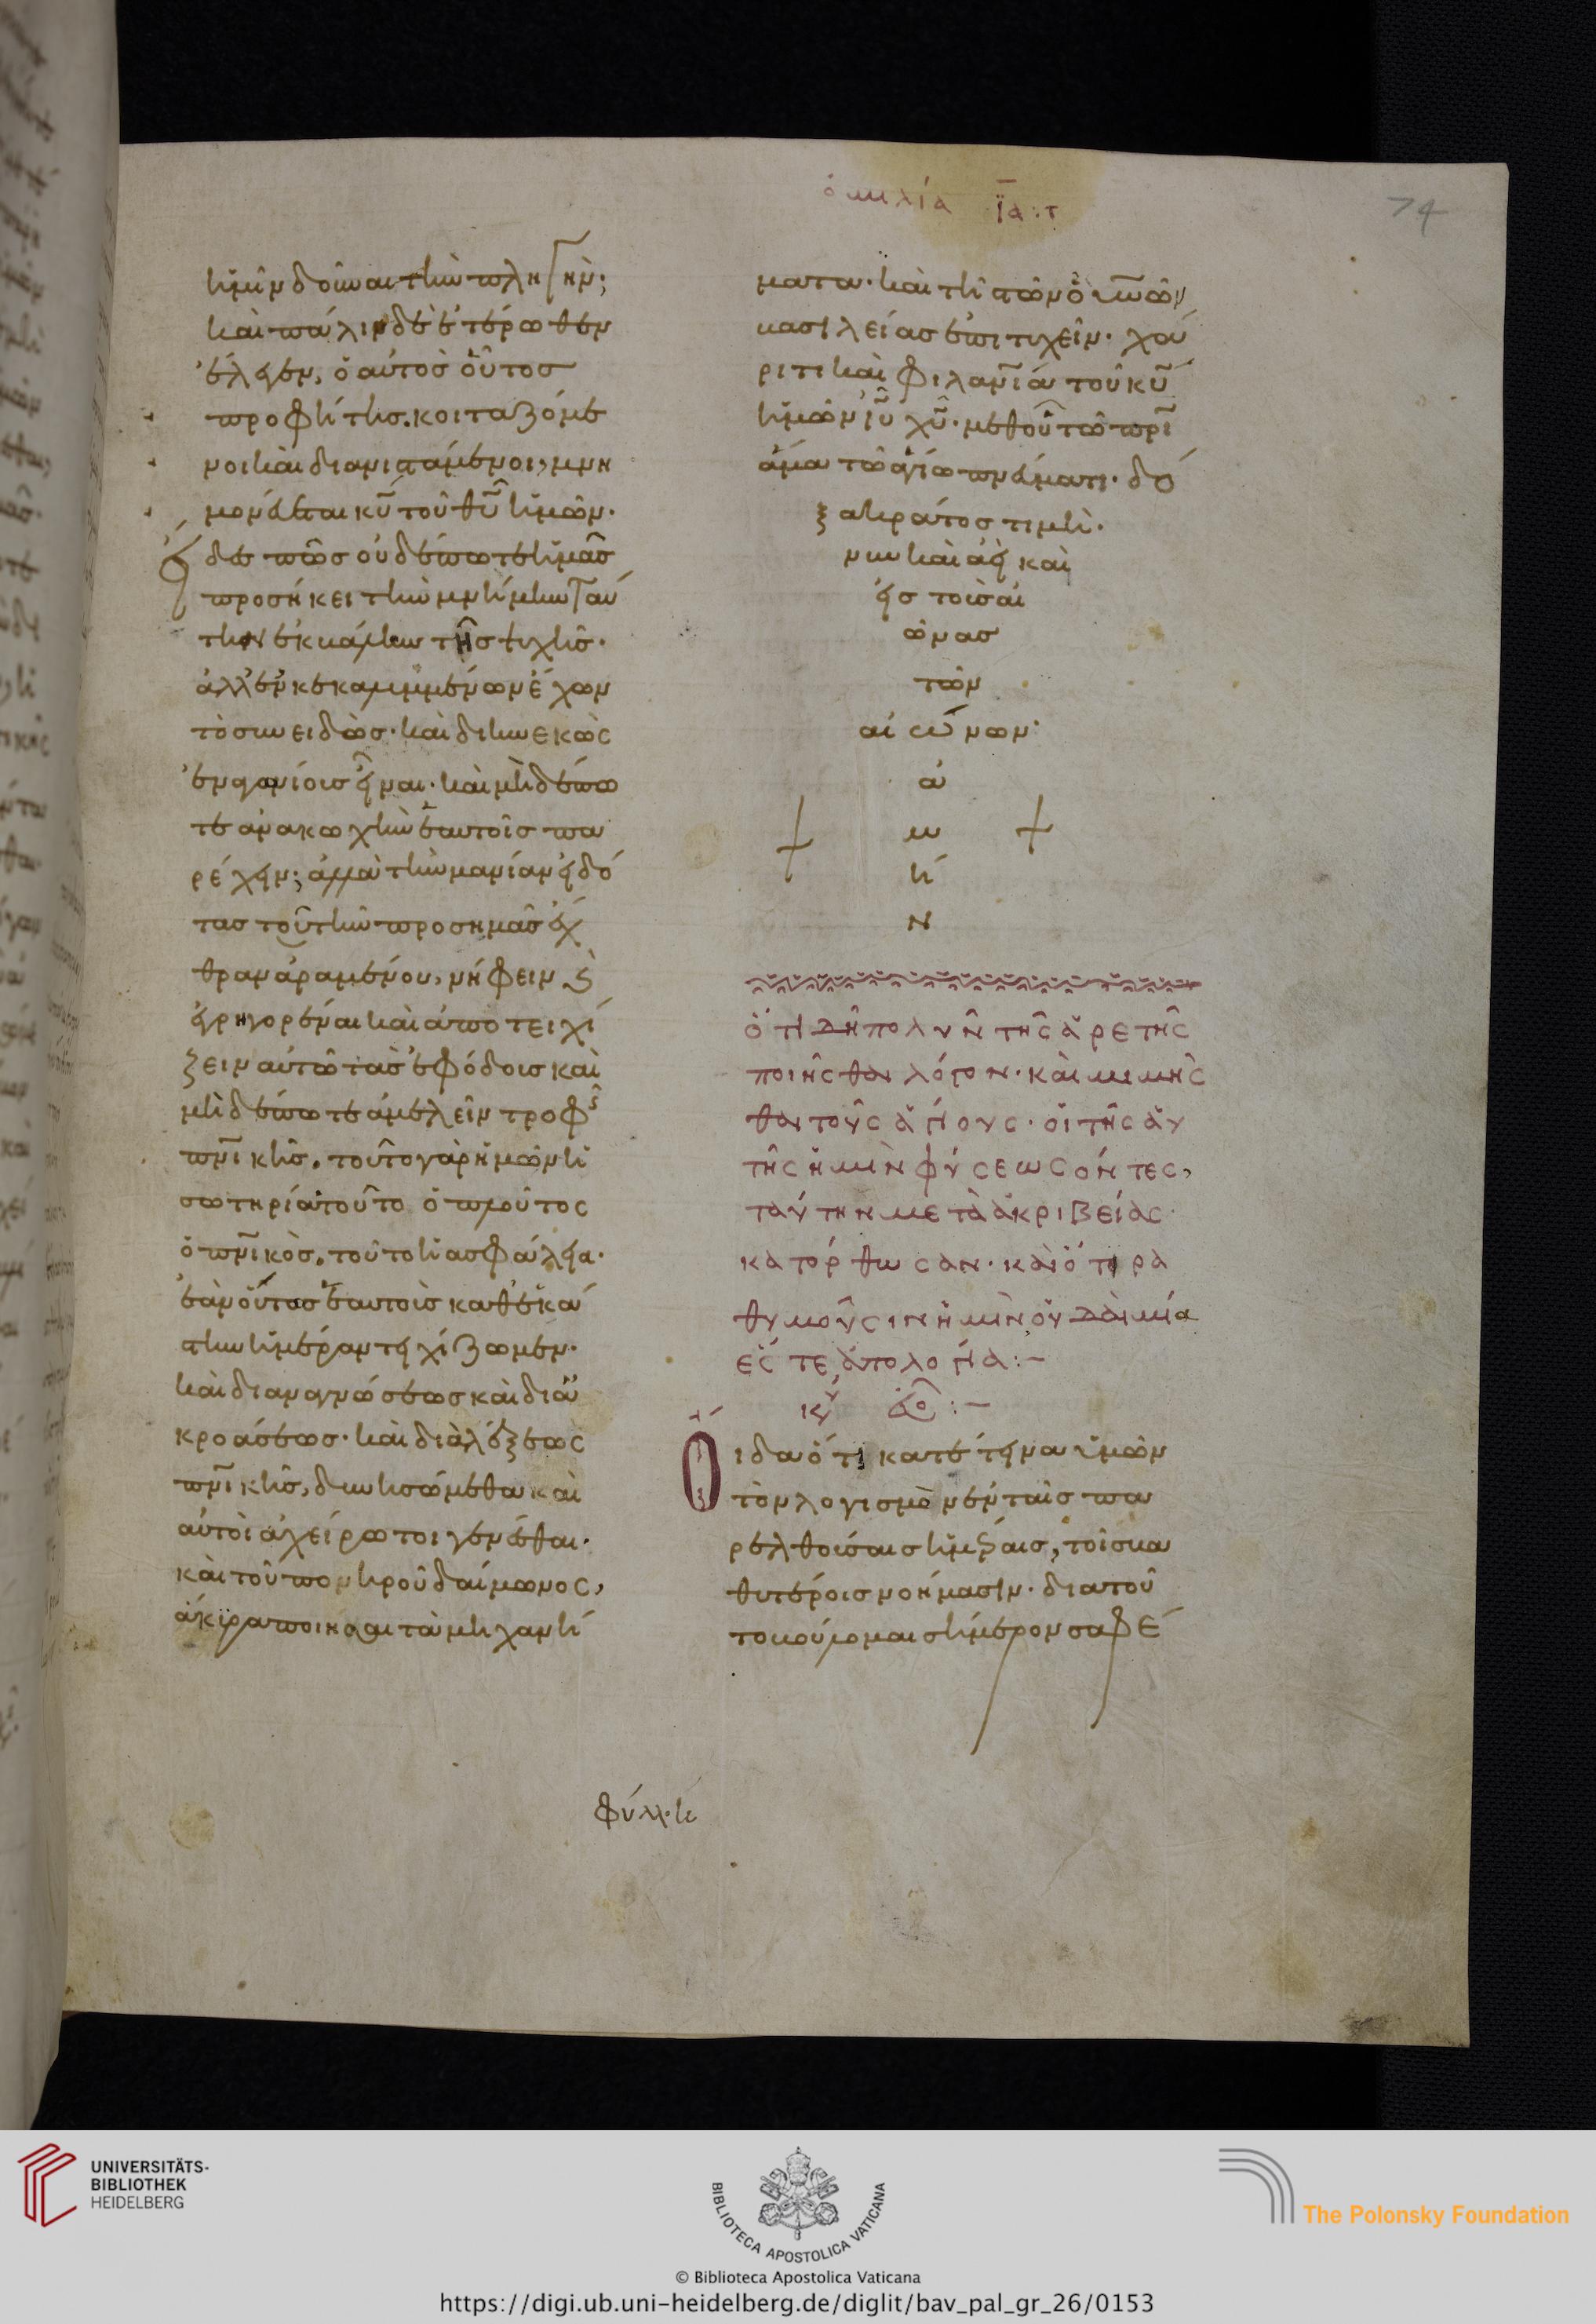 ὁμιλία ϊα·τ
74
ἡμῖν δοῦναι τὴν πληγὴν;
καὶ πάλιν δὲ ἑτέρωθεν
ἔλεγεν, ὁ αὐτὸς οὗτος
προφήτης. κοιταζόμε
νοι καὶ διανιστάμενοι, μνη
μονεύεται κῦ τοῦ θῦ ἡμῶν.
δε πῶς οὐδέποτε ἡμᾶς
προσήκει τὴν μνήμην ταύ
την ἐκβάλλειν τῆς ψυχῆς.
ἀλλ' ἐγκεκαυμμένων ἔχων
τὸ συνειδὼς. καὶ διηνεκῶς
ἐναγωνίοις εἶναι. καὶ μηδέπο
τε ἀνακωχὴν ἑαυτοῖς πα
ρέχειν; ἀλλὰ τὴν μανίαν εἰδό
τας τοῦ τὴν προς ημᾶς ἔχ
θραν ἀραμένου, νήφειν κ
ἐγρηγορέναι καὶ ἀποτειχί
ζειν αὐτῶ τὰς ἐφόδοις καὶ
μηδέποτε ἀμελεῖν τροφῆς
πνικῆς. τοῦτο γὰρ ἡμῶν ἡ
σωτηρία τοῦτο ὁ πλοῦτος
ὁ πνικὸς. τοῦτο ἡ ασφάλεια.
ἐὰν οὕτως ἑαυτοὶς καθ' ἑκά
στην ἡμέραν τειχίζωμεν.
καὶ δι αναγνώσεως καὶ δι α
κροάσεως. καὶ διὰλέξεως
πνικῆς, δυνησώμεθα καὶ
αὐτοὶ ἀχείρωτοι γενέσθαι.
καὶ τοῦ πονηροῦ δαίμωνος,
ἄκυρα ποιῆσαι τὰ μηχανή
ματα. καὶ τῆς τῶν οὐνῶν
βασιλείας ἐπιτυχεῖν. χά
ριτι καὶ φιλανία τοῦ κῦ
ἡμῶν ιῦ χῦ. μεθ οὗ τῶ πρι
ἅμα τῶ ἁγίω πνεύματι. δό
ξα κράτος τιμὴ.
νυν καὶ ἀεὶ καὶ
εἰς τοὺς αἰ
ῶνας
τῶν
αἰώνων·
ἀ
μ
ή
ν
ὅτι δεῖ πολὺν τῆς ἀρετῆς
ποιεῖσθαι λόγον. καὶ μιμεῖς
θαι τοὺς ἁγίους. οἳ τῆς αὐ
τῆς ἡμῖν φύσεως όντες,
ταύτην μετὰ ἀκριβείας
κατόρθωσαν. καὶ ὅτι ρα
θυμοῦσιν ἡμῖν οὐδὲ μία
ἔσται ἀπολογία:–
Οιδα ὅτι κατέτεινα ὑμῶν
τὸν λογισμὸν ἐν ταὶς πα
ρελθούσαις ἡμέραις, τοῖς βα
θυτέροις νοήμασιν. δια τοῦ
το βούλομαι σήμερον σαφέ
φύλλ· η
UNIVERSITÄTS-
BIBLIOTHEK
HEIDELBERG
BIBLIOTECA APOSTOLICA VATICANA
The Polonsky Foundation
© Biblioteca Apostolica Vaticana
https://digi.ub.uni-heidelberg.de/diglit/bav_pal_gr_26/0153